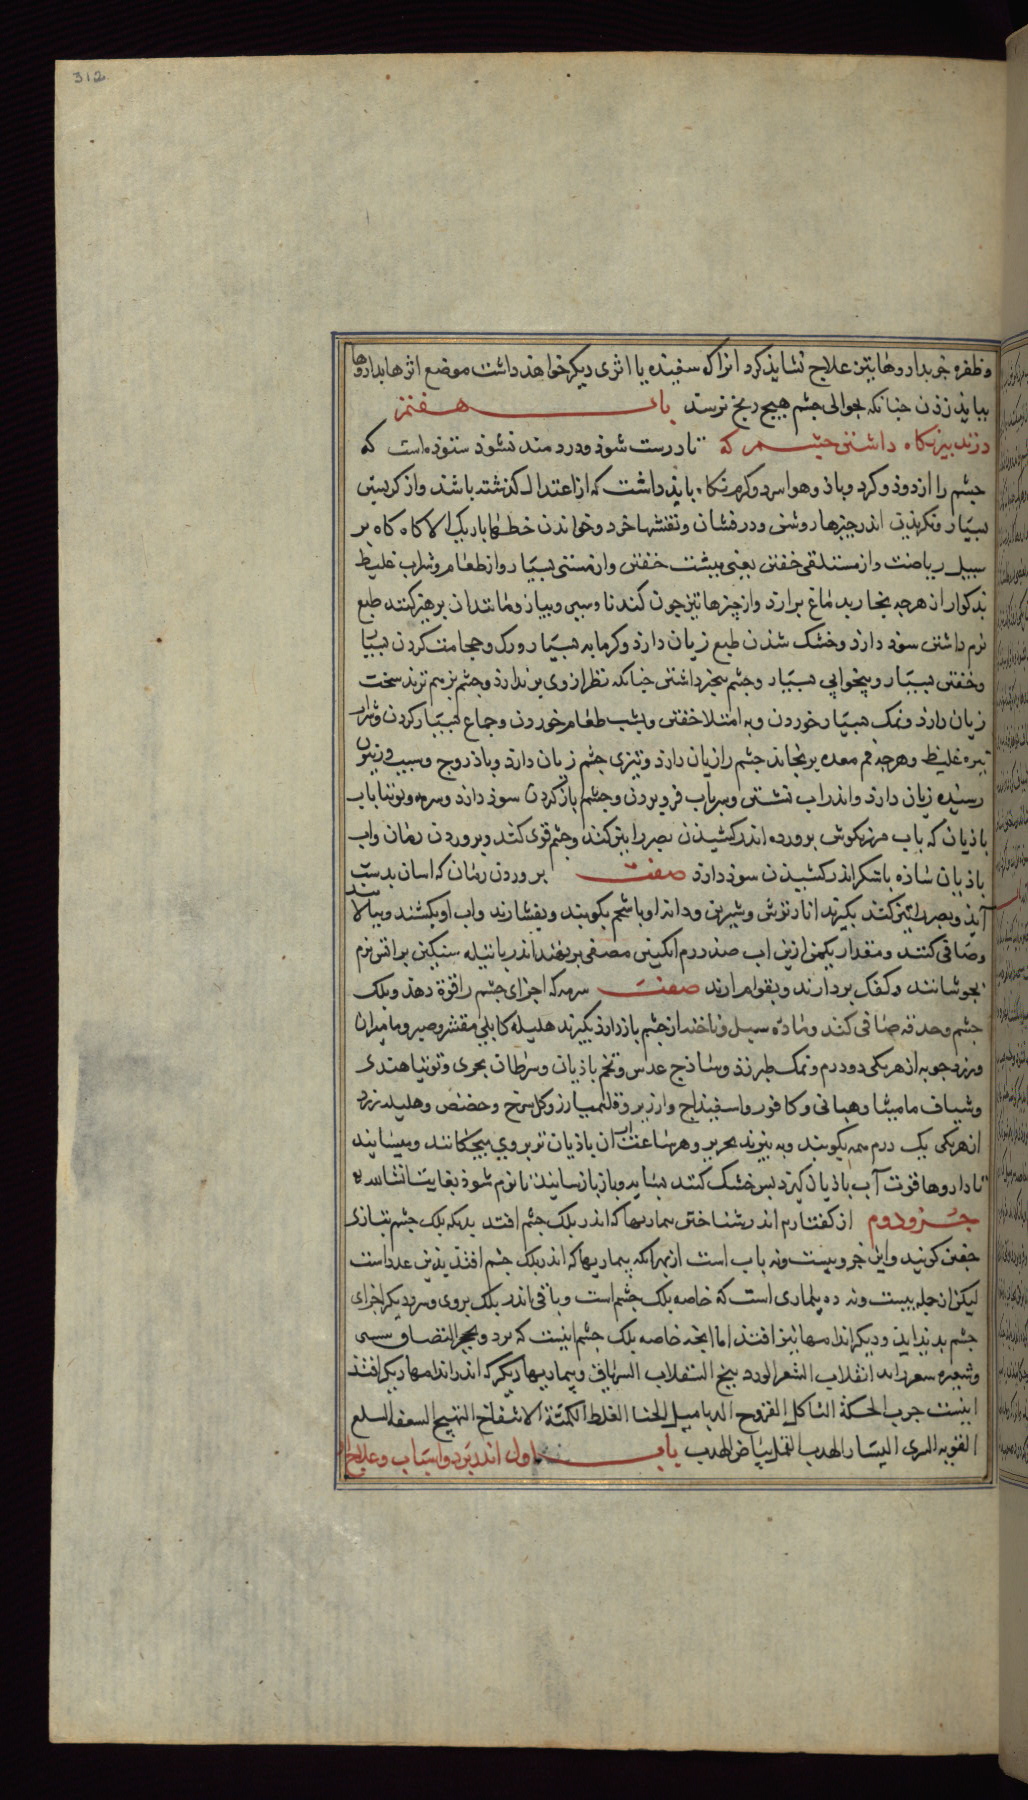 312
و ظفره جز بداروهای تیز علاج نشاید کرد انرا که سفیده یا اثری دیکر خواهذ داشت موضع اثر ها بداروها
بباید زذن جنانکه بحوالی جشم هیج رنج نرسد باب هفتم
در تدبیر نکاه داشتن جشم که تا درست شوذ و دردمند نشوذ ستوذه است که
جشم را از دوذ و کرد و باذ و هوا سرد و کرم نکاه بایذ داشت که از اعتدال کذشته باشذ و از کریستن
بسیار و نکریذن اندر جیزها روشن و درفشان و نقشها خرد و خواندن خطها باریک الا کاه کاه بر
سبیل ریاضت و از مستلقی خفتن یعنی بپشت خفتن و از مستی بسیار و از طعام و شراب غلیظ
بد کوار از هرجه بخار بدماغ برارد و از جیزها تیز جون کندنا و سیر و بیاز و مانند ان برهیز کنند طبع
نرم داشتن سوذ دارذ و خشک شذن طبع زیان دارذ و کرمابه بسیار و رک و حجامت کردن بسیار
و خفتن بسیار و بیخوابی بسیار و جشم متحیر داشتن جنانکه نظر از وی بر ندارذ و جشم بر هم نزند سخت
زیان دارذ و نمک بسیار خوردن و به امتلا خفتن و بشب طعام خوردن و جماع بسیار کردن و شراب
تیره غلیظ و هرجه فم معده برنجاند جشم را زیان دارذ و تیزی جشم زیان دارذ و باذروج و سبت و زیتون
رسیذه زیان دارذ و اندر اب نشستن و سر باب فرو بردن و جشم باز کردن سوذ دارذ و سرمه و توتیا باب
باذیان که باب مرزنکوش برورده اندر کشیذن بصر را تیز کند و جشم قوی کند و بروردن رمان و اب
باذیان تازه با شکر اندر کشیذن سوذ دارذ صفت بروردن رمان که اسان بدست
آیذ و بصر را تیز کند بکیرند انار ترش و شیرین و دانه او با شحم بکوبند و بیفشارند و اب او بکشند و ببالایند
و صافی کنند و مقدار یکمن ازین اب صد درم انکبین مصفی بر نهند اندر باتیله سنکین بر اتش نرم
بجوشانند و کفک بردارند و بقوام ارند صفت سرمه که اجزای جشم را قوة دهذ و بلک
جشم و حدقه صافی کند و ماده سبل و ناخنه از جشم باز دارذ بکیرند هلیله کابلی مقشر و صبر و مامیران
و زردجوبه از هریکی دو درم و نمک طبرزذ و ساذج عدس و تخم باذیان و سرطان بحری و توتیا هندی
و شیاف مامیثا و همانی و کافور و اسفیذاج و ارزیز و قلیمیا زر و کل سرخ و حضض و هلیله زرد
از هریکی یک درم همه بکوبند و به بیزند بحریر و هر ساعت اب ان باذیان تر بر وی میجکانند و میسایند
تا داروها قوت آب باذیان کیرد بس خشک کنند بساید و باز باز سایند تا نرم شوذ بغایت انشا الله
جزو دوم از کفتار دوم اندر شناختن بیماریها که اندر بلک جشم افتد بدانکه بلک جشم بتازی
جفن کویند و این جزو بیست و نه باب است از بهر انکه بیماریها که اندر بلک جشم افتد بذین عدد است
لیکن از جمله بیست و نه ده بیماری است که خاصه بلک جشم است و باقی اندر بلک بروی و سر و دیکر اجزای
جشم بدید ایذ و دیکر اندامها نیز افتد اما انجه خاصه بلک جشم اینست که برد و تحجر التصاق
و شعیره شعر زاید انقلاب الشعر الورد بینج الشقلاب الشرناق و بیماریها دیکر که اندر اندامها دیکر افتد
اینست جرب الحکة التاکل القروح الدمامیل الجسا الغلظ الکمنة الانتفاخ التهیج السعفه السلع
القوبه الشری الیسار الهدب القمل بیاض الهدب باب اول اندر برد و اسباب و علاج ان